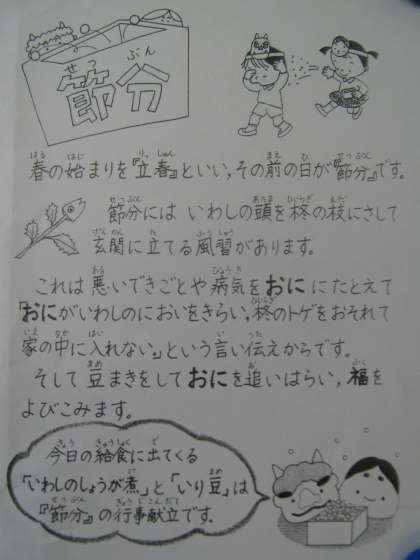 節分
春の始まりを『立春』といい,その前の日が『節分』です。
節分には いわしの頭を柊の枝にさして
玄関に立てる風習があります。
これは悪いできごとや病気をおににたとえて
『おにがいわしのにおいをきらい,柊のトゲをおそれて
家の中に入れない。』という言い伝えからです。
そして豆まきをしておにを追いはらい,福を
よびこみます。
今日の給食に出てくる
「いわしのしょうが煮」と「いり豆」は
『節分』の行事献立です。